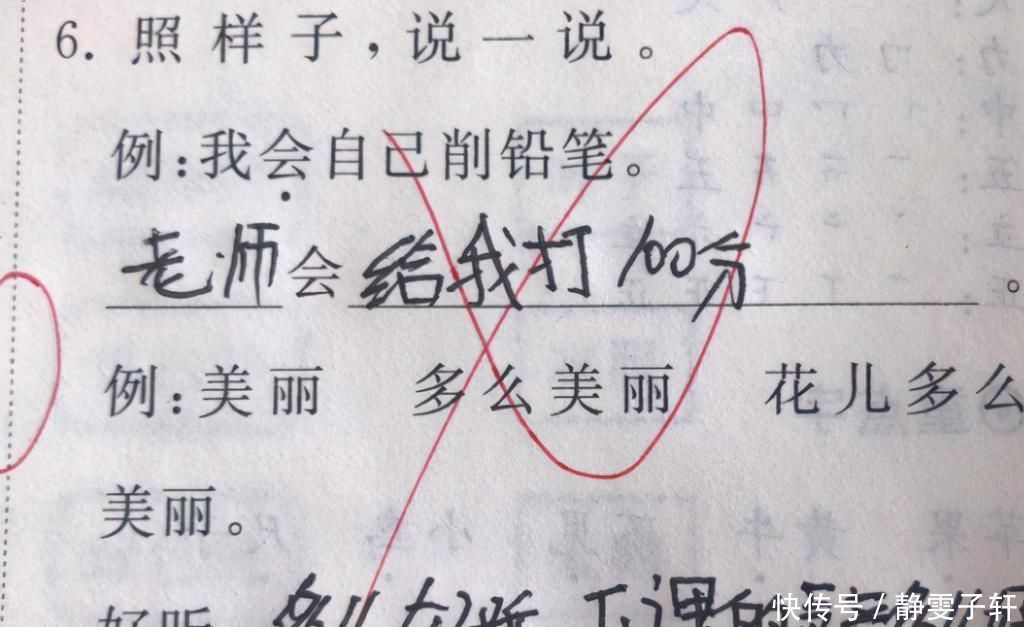 6. 照样子，说一说。
例：我会自己削铅笔。
老师会给我打100分。
例：美丽 多么美丽 花儿多么
美丽。
好听 多么好听 下课的
快传号 / 静雯子轩